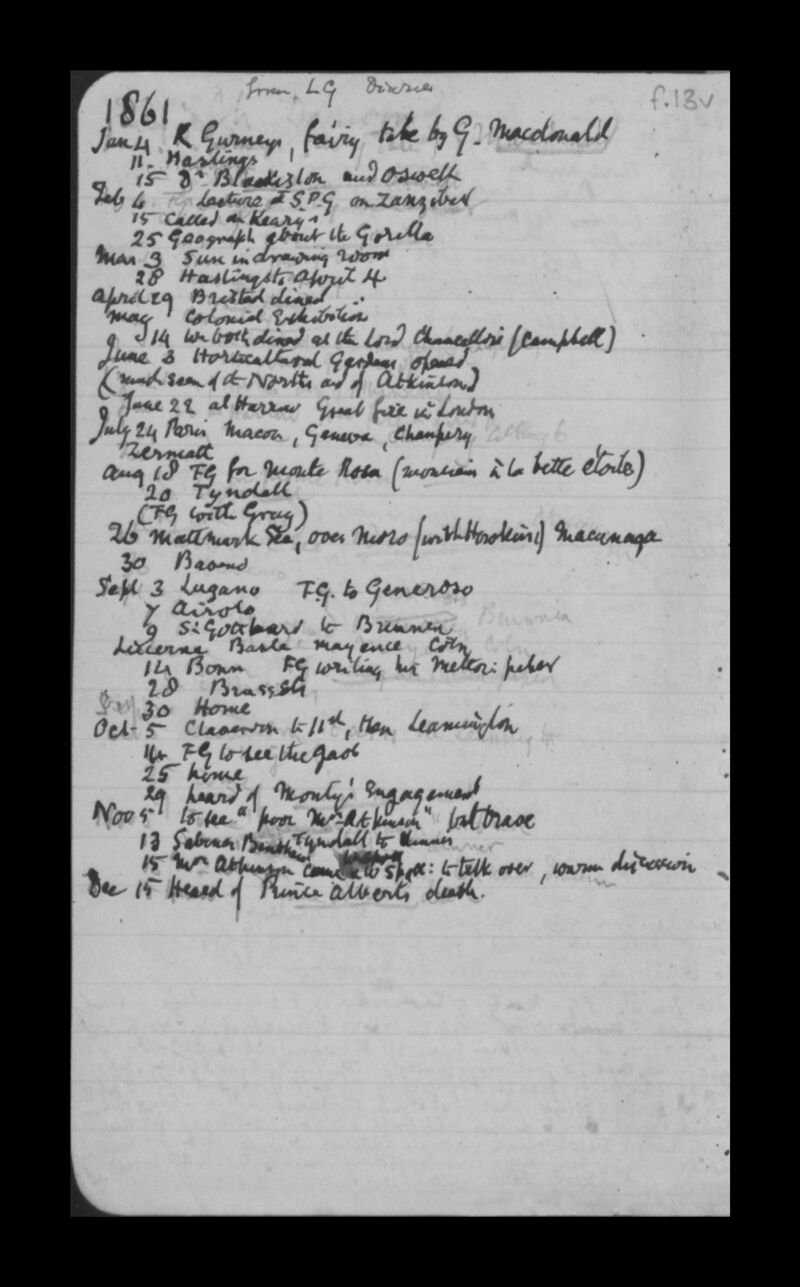 from LG Diaries
f.13v
1861
Jan 4 R Gurneys, fairy tale by G. Macdonald
11 Hastings
15 Dr Blakiston and Oswell
Feb 4 Lecture at S.P.G. on Zanzibar
15 Called on Kearys
25 Geograph about the Gorilla
Mar 3 Sun in drawing room
28 Hastings to April 4
April 29 Bristed dined
May Colonial Exhibition
14 We both dined at the Lord Chancellors (Campbell)
June 3 Horticultural Gardens opened
(much seen of the Norths and of Atkinson)
June 22 at Harrow Great fire in London
July 24 Paris Macon, Geneva, Champery
Zermatt
Aug 18 FG for Monte Rosa (à la belle étoile)
20 Tyndall
(FG with Gray)
26 Mattmark See, over Moro (with Hawkins) Macunaga
30 Baveno
Sept 3 Lugano F.G. to Generoso
7 Airolo
9 St Gotthard to Brunnen
Lucerne Basle Mayence Coln
14 Bonn FG writing his Meteor: paper
28 Brussels
30 Home
Oct 5 Claverdon to 11th, then Leamington
14 FG to see the Gaol
25 home
29 heard of Monty's Engagement
Nov 5 to see "poor Mrs Atkinson" but brave
13 Sabines Tyndall to dinner
15 Mrs Atkinson came to talk over, warm discussion
Dec 15 Heard of Prince Alberts death.